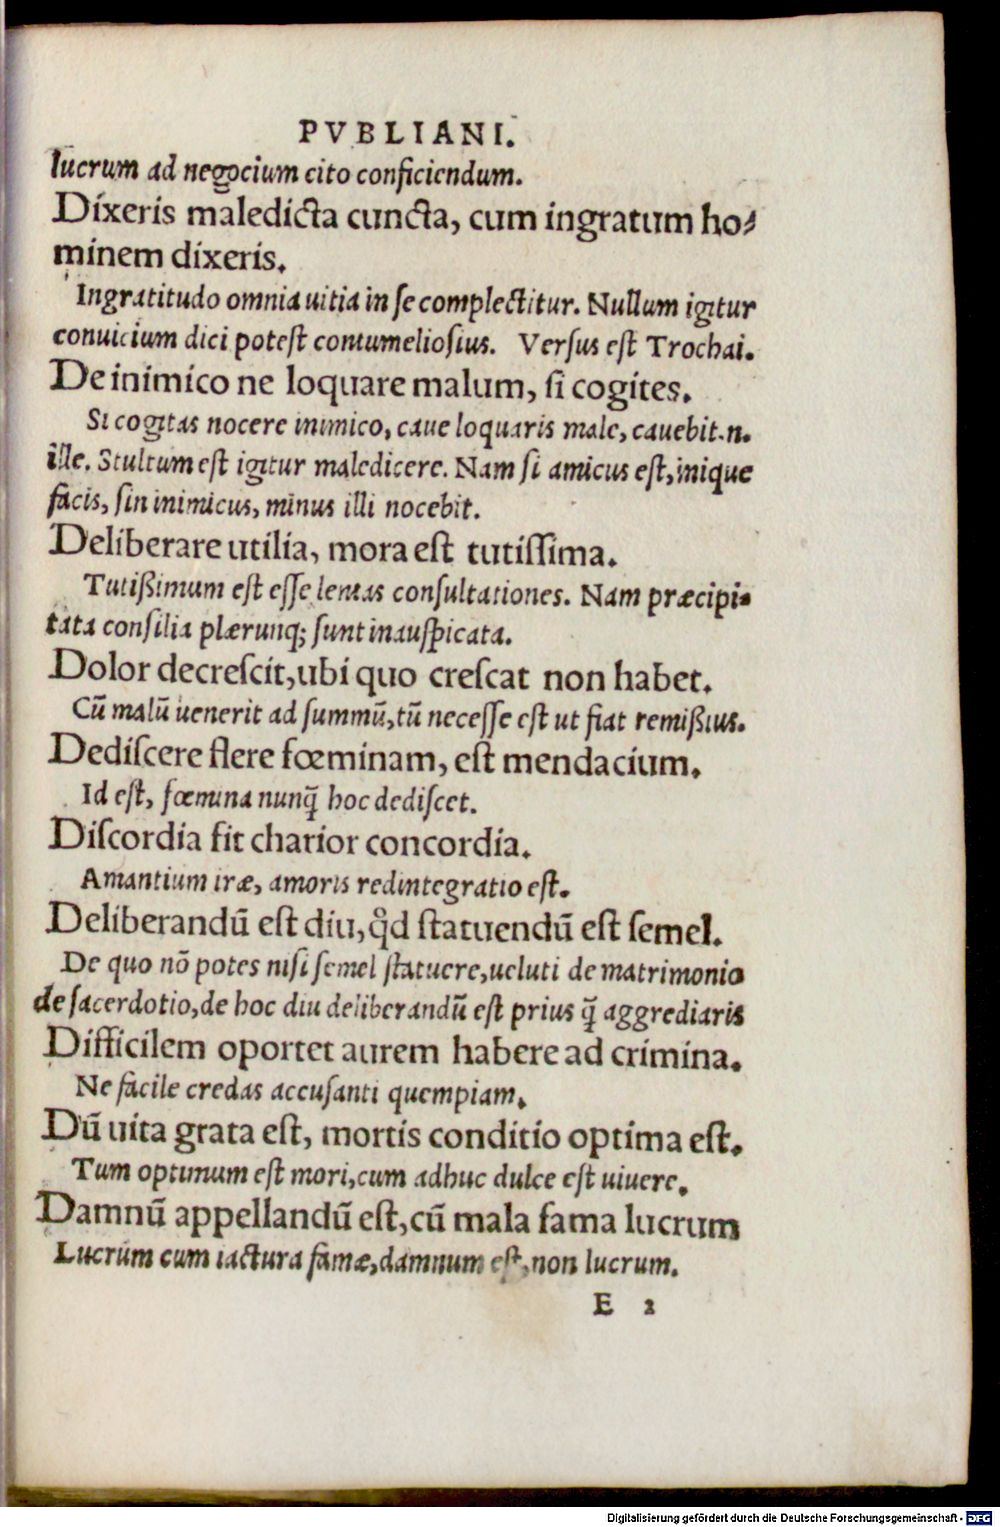 PVBLIANI.
lucrum ad negocium cito conficiendum.
Dixeris maledicta cuncta, cum ingratum ho⸗
minem dixeris.
Ingratitudo omnia uitia in ſe complectitur. Nullum igitur
conuicium dici poteſt contumelioſius. Verſus eſt Trochai.
De inimico ne loquare malum, ſi cogites.
Si cogitas nocere inimico, caue loquaris male, cauebit.n.
ille. Stultum eſt igitur maledicere. Nam ſi amicus eſt, inique
facis, ſin inimicus, minus illi nocebit.
Deliberare utilia, mora eſt tutiſſima.
Tutißimum eſt eſſe lentas conſultationes. Nam præcipi⸗
tata conſilia plærunq; ſunt inauſpicata.
Dolor decreſcit, ubi quo creſcat non habet.
Cū malū uenerit ad ſummū, tū neceſſe eſt ut fiat remißius.
Dediſcere flere fœminam, eſt mendacium.
Id eſt, fœmina nunq̄ hoc dediſcet.
Diſcordia fit charior concordia.
Amantium iræ, amoris redintegratio eſt.
Deliberandū eſt diu, qd̛ ſtatuendū eſt ſemel.
De quo nō potes niſi ſemel ſtatuere, ueluti de matrimonio
de ſacerdotio, de hoc diu deliberandū eſt prius q̄ aggrediaris
Difficilem oportet aurem habere ad crimina.
Ne facile credas accuſanti quempiam.
Dū uita grata eſt, mortis conditio optima eſt.
Tum optimum eſt mori, cum adhuc dulce eſt uiuere.
Damnū appellandū eſt, cū mala fama lucrum
Lucrum cum iactura famæ, damnum eſt, non lucrum.
E 2
Digitalisierung gefördert durch die Deutsche Forschungsgemeinschaft - DFG